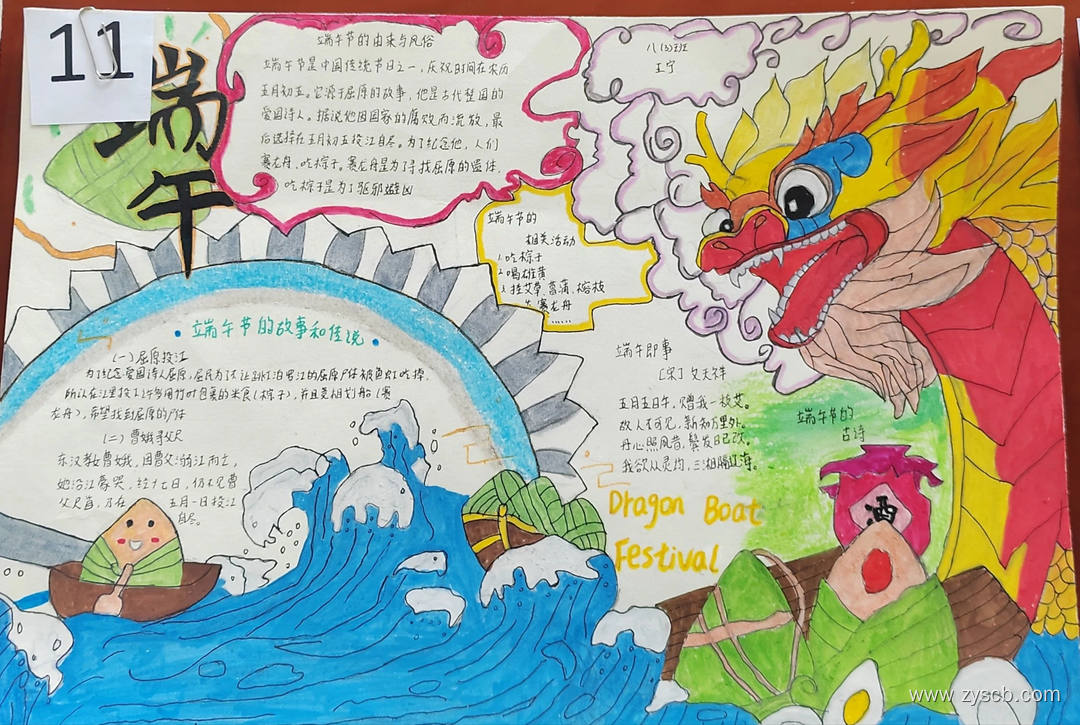 11
端午
端午节的由来与风俗
端午节是中国传统节日之一，庆祝时间在农历
五月初五。它源于屈原的故事，他是古代楚国的
爱国诗人。据说他因国家的腐败而流放，最
后选择在五月初五投江自尽。为了纪念他，人们
赛龙舟、吃粽子。赛龙舟是为了寻找屈原的遗体，
吃粽子是为了驱邪避凶
八(3)班
王宁
端午节的
相关活动
1.吃粽子
2.喝雄黄
3.挂艾草、菖蒲、榕枝
4.赛龙舟
......
·端午节的故事和传说·
(一)屈原投江
为了纪念爱国诗人屈原，居民为了不让跳下汨罗江的屈原尸体被鱼虾吃掉，
所以在江里投下许多用竹叶包裹的米食(粽子)，并且竞相划船(赛
龙舟)，希望找到屈原的尸体
(二)曹娥寻父尸
东汉孝女曹娥，因曹父溺江而亡，
她沿江豪哭，经十七日，仍不见曹
父尸首，乃在 五月一日投江
自尽。
端午即事
[宋]文天祥
五月五日午，赠我一枝艾。
故人不可见，新知万里外。
丹心照夙昔，鬓发日已改。
我欲从灵均，三湘隔辽海。
端午节的
古诗
Dragon Boat
Festival
酒
www.zyscb.com